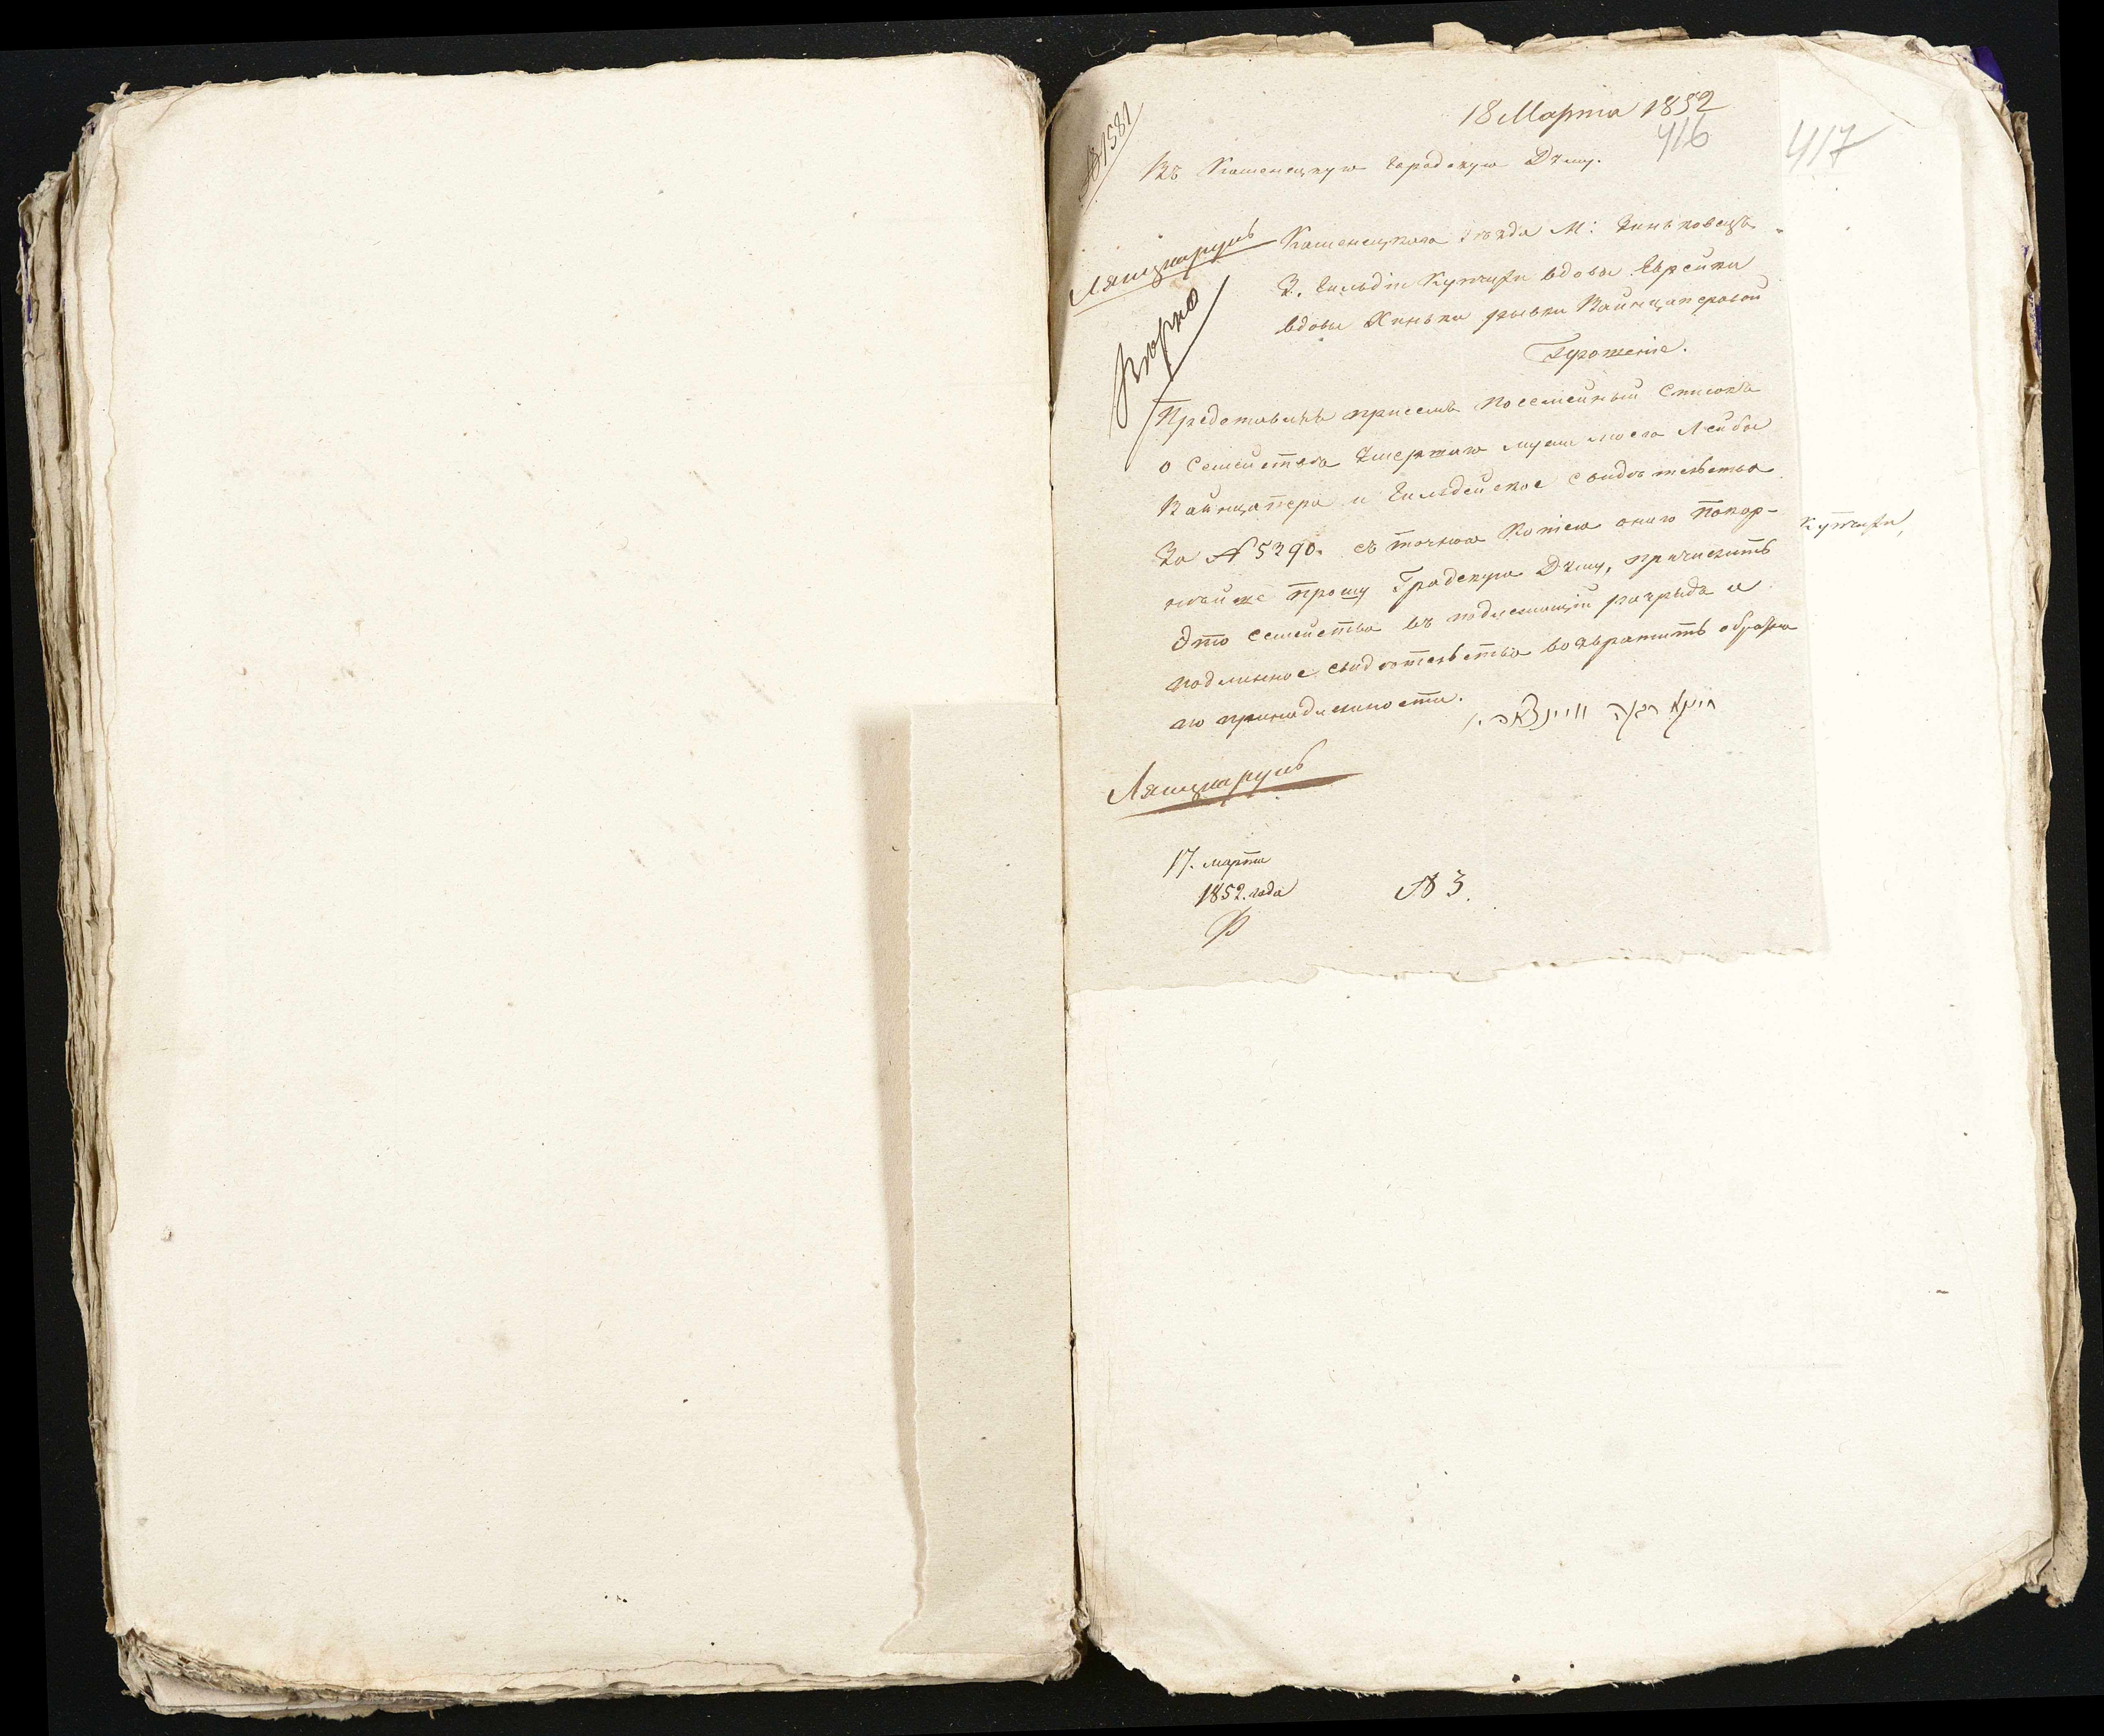 18 Марта 1852
416
417
№ 1581
Въ Каменецкую Городскую Думу.
Каменецкаго уѣзда М: Зиньковецъ
3. Гильдіи Купчихи вдовы Еврейки
вдовы Хиньки Вайнцаперовой
Прошеніе.
Вѣрно
Представляя присемъ посемейный Списокъ
о Семействѣ умершаго мужа моего Лейбы
Вайнцапера и Гильдейское свидѣтельство
За № 5290. съ точною Копіею онаго покор-
нѣйше прошу Градскую Думу, причислить
Это Семейство въ подлежащій разрядъ а
подлинное свидѣтельство возвратить обратно
по принадлежности.
купчихи,
17. марта
1852. года
№ 3.